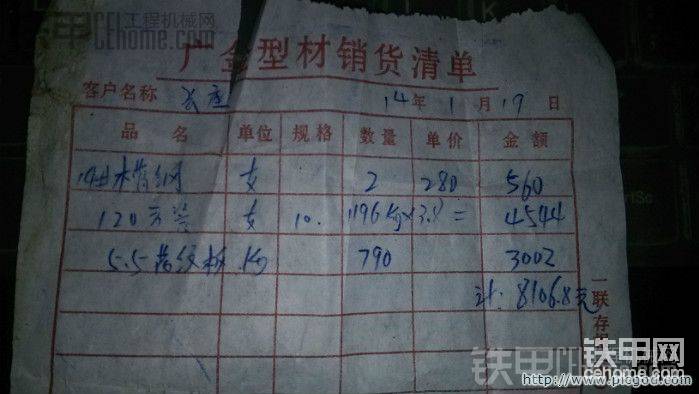 工程机械网
cehome.com
广金型材销货清单
客户名称
14年1月19日
品名 单位 规格 数量 单价 金额
支 2 280 560
120方 支 10. 1196kg×3.8= 4544
5.5花纹板 kg 790 3002
计: 8106.8元
一联存
铁甲网
cehome.com
http://www.picgod.com